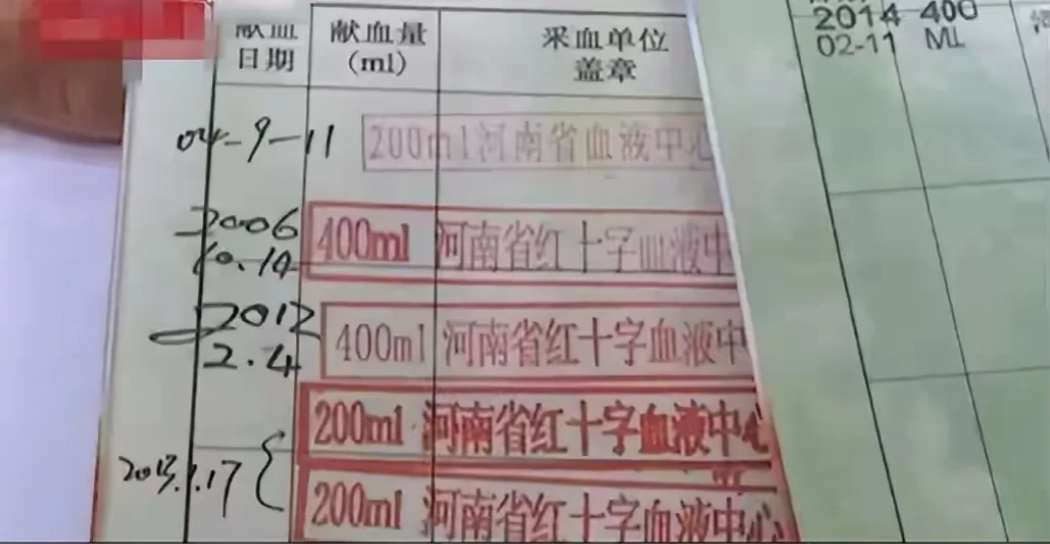 献血
日期
献血量
(ml)
采血单位
盖章
04-9-11
200ml河南省血液中心
2006
10.14
400ml 河南省红十字血液中
2012
2.4
400ml 河南省红十字血液中
200ml 河南省红十字血液中心
2013.1.17
200ml 河南省红十字血液中心
2014 400
02-11 ML